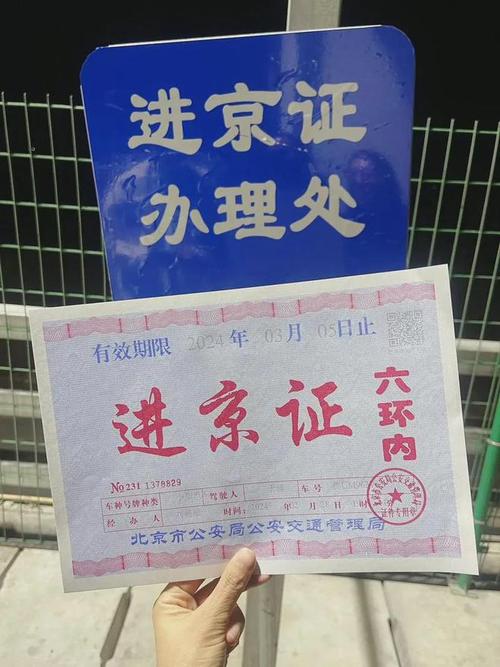 进京证
办理处
有效期限 2024 年 03 月 05 日止
进京证
六环内
No 231 1378829
车种号牌种类 驾驶人 车号
经办人 时间: 2024 年 月 日
北京市公安局公安交通管理局